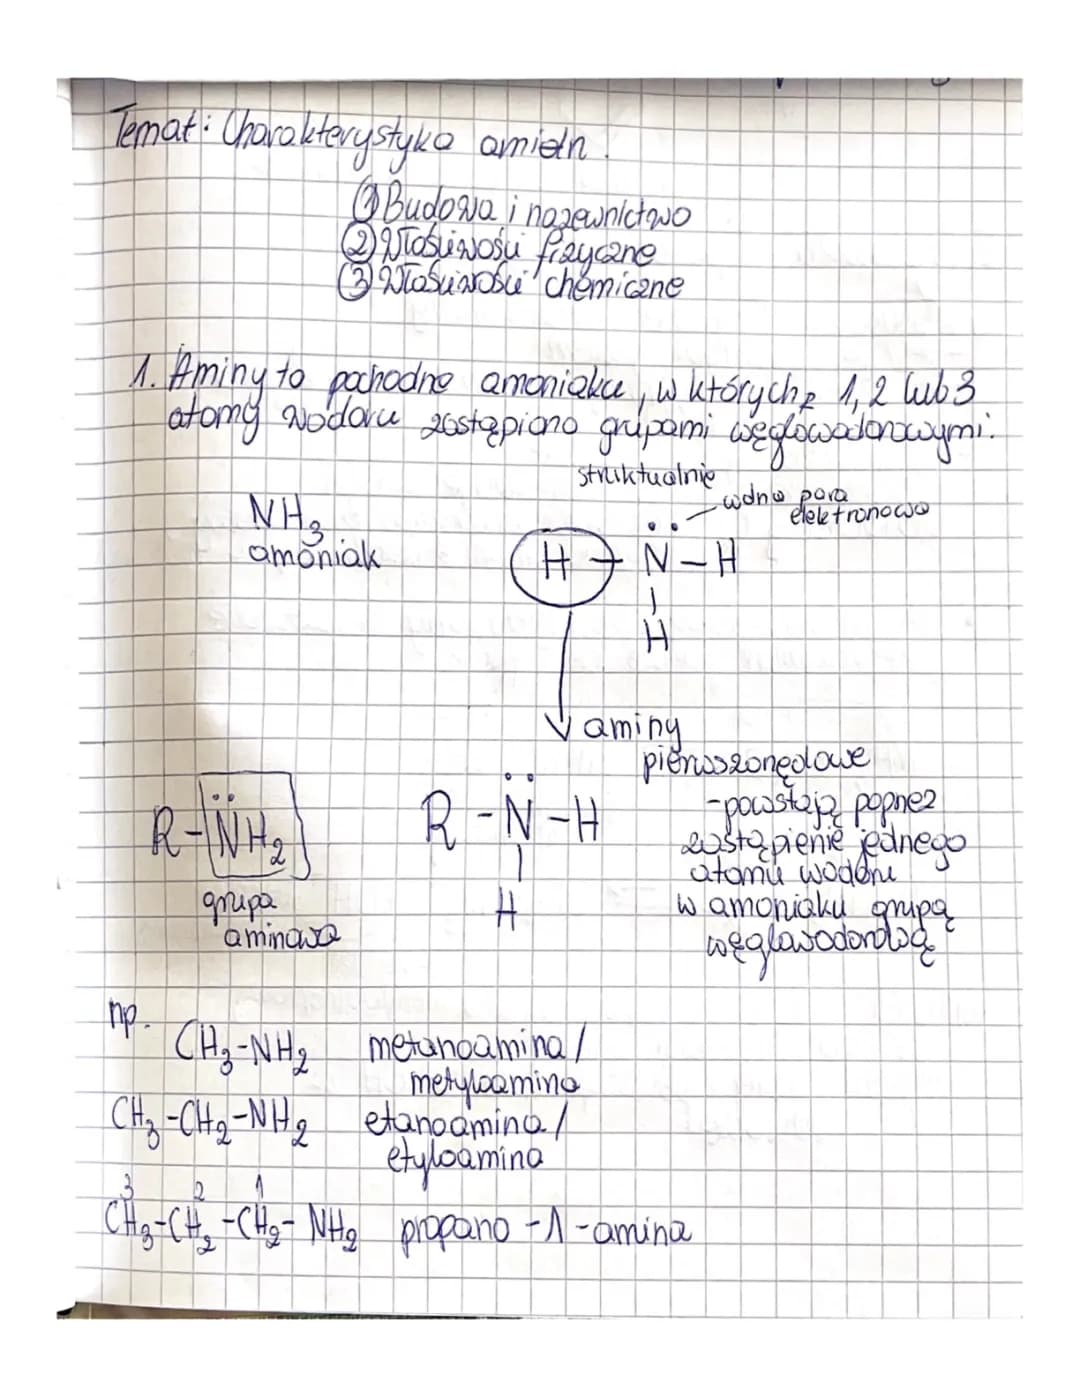 Temat: Charakterystyka amin.
① Budowa i nazewnictwo
② Właściwości fizyczne
③ Właściwości chemiczne
1. Aminy to pochodne amoniaku, w których 1, 2 lub 3
atomy wodoru zastąpiono grupami węglowodorowymi.
struktualnie
wolna para
elektronowa
NH3
amoniak
H - N̈ - H
|
H
aminy
pierwszorzędowe
R-N̈H2
R - N̈ - H
|
H
- powstają poprzez
zastąpienie jednego
atomu wodoru
w amoniaku grupą
węglowodorową
grupa
aminowa
np.
CH3-NH2 metanoamina/
metyloamina
CH3-CH2-NH2 etanoamina/
etyloamina
3 2 1
CH3-CH2-CH2-NH2 propano-1-amina